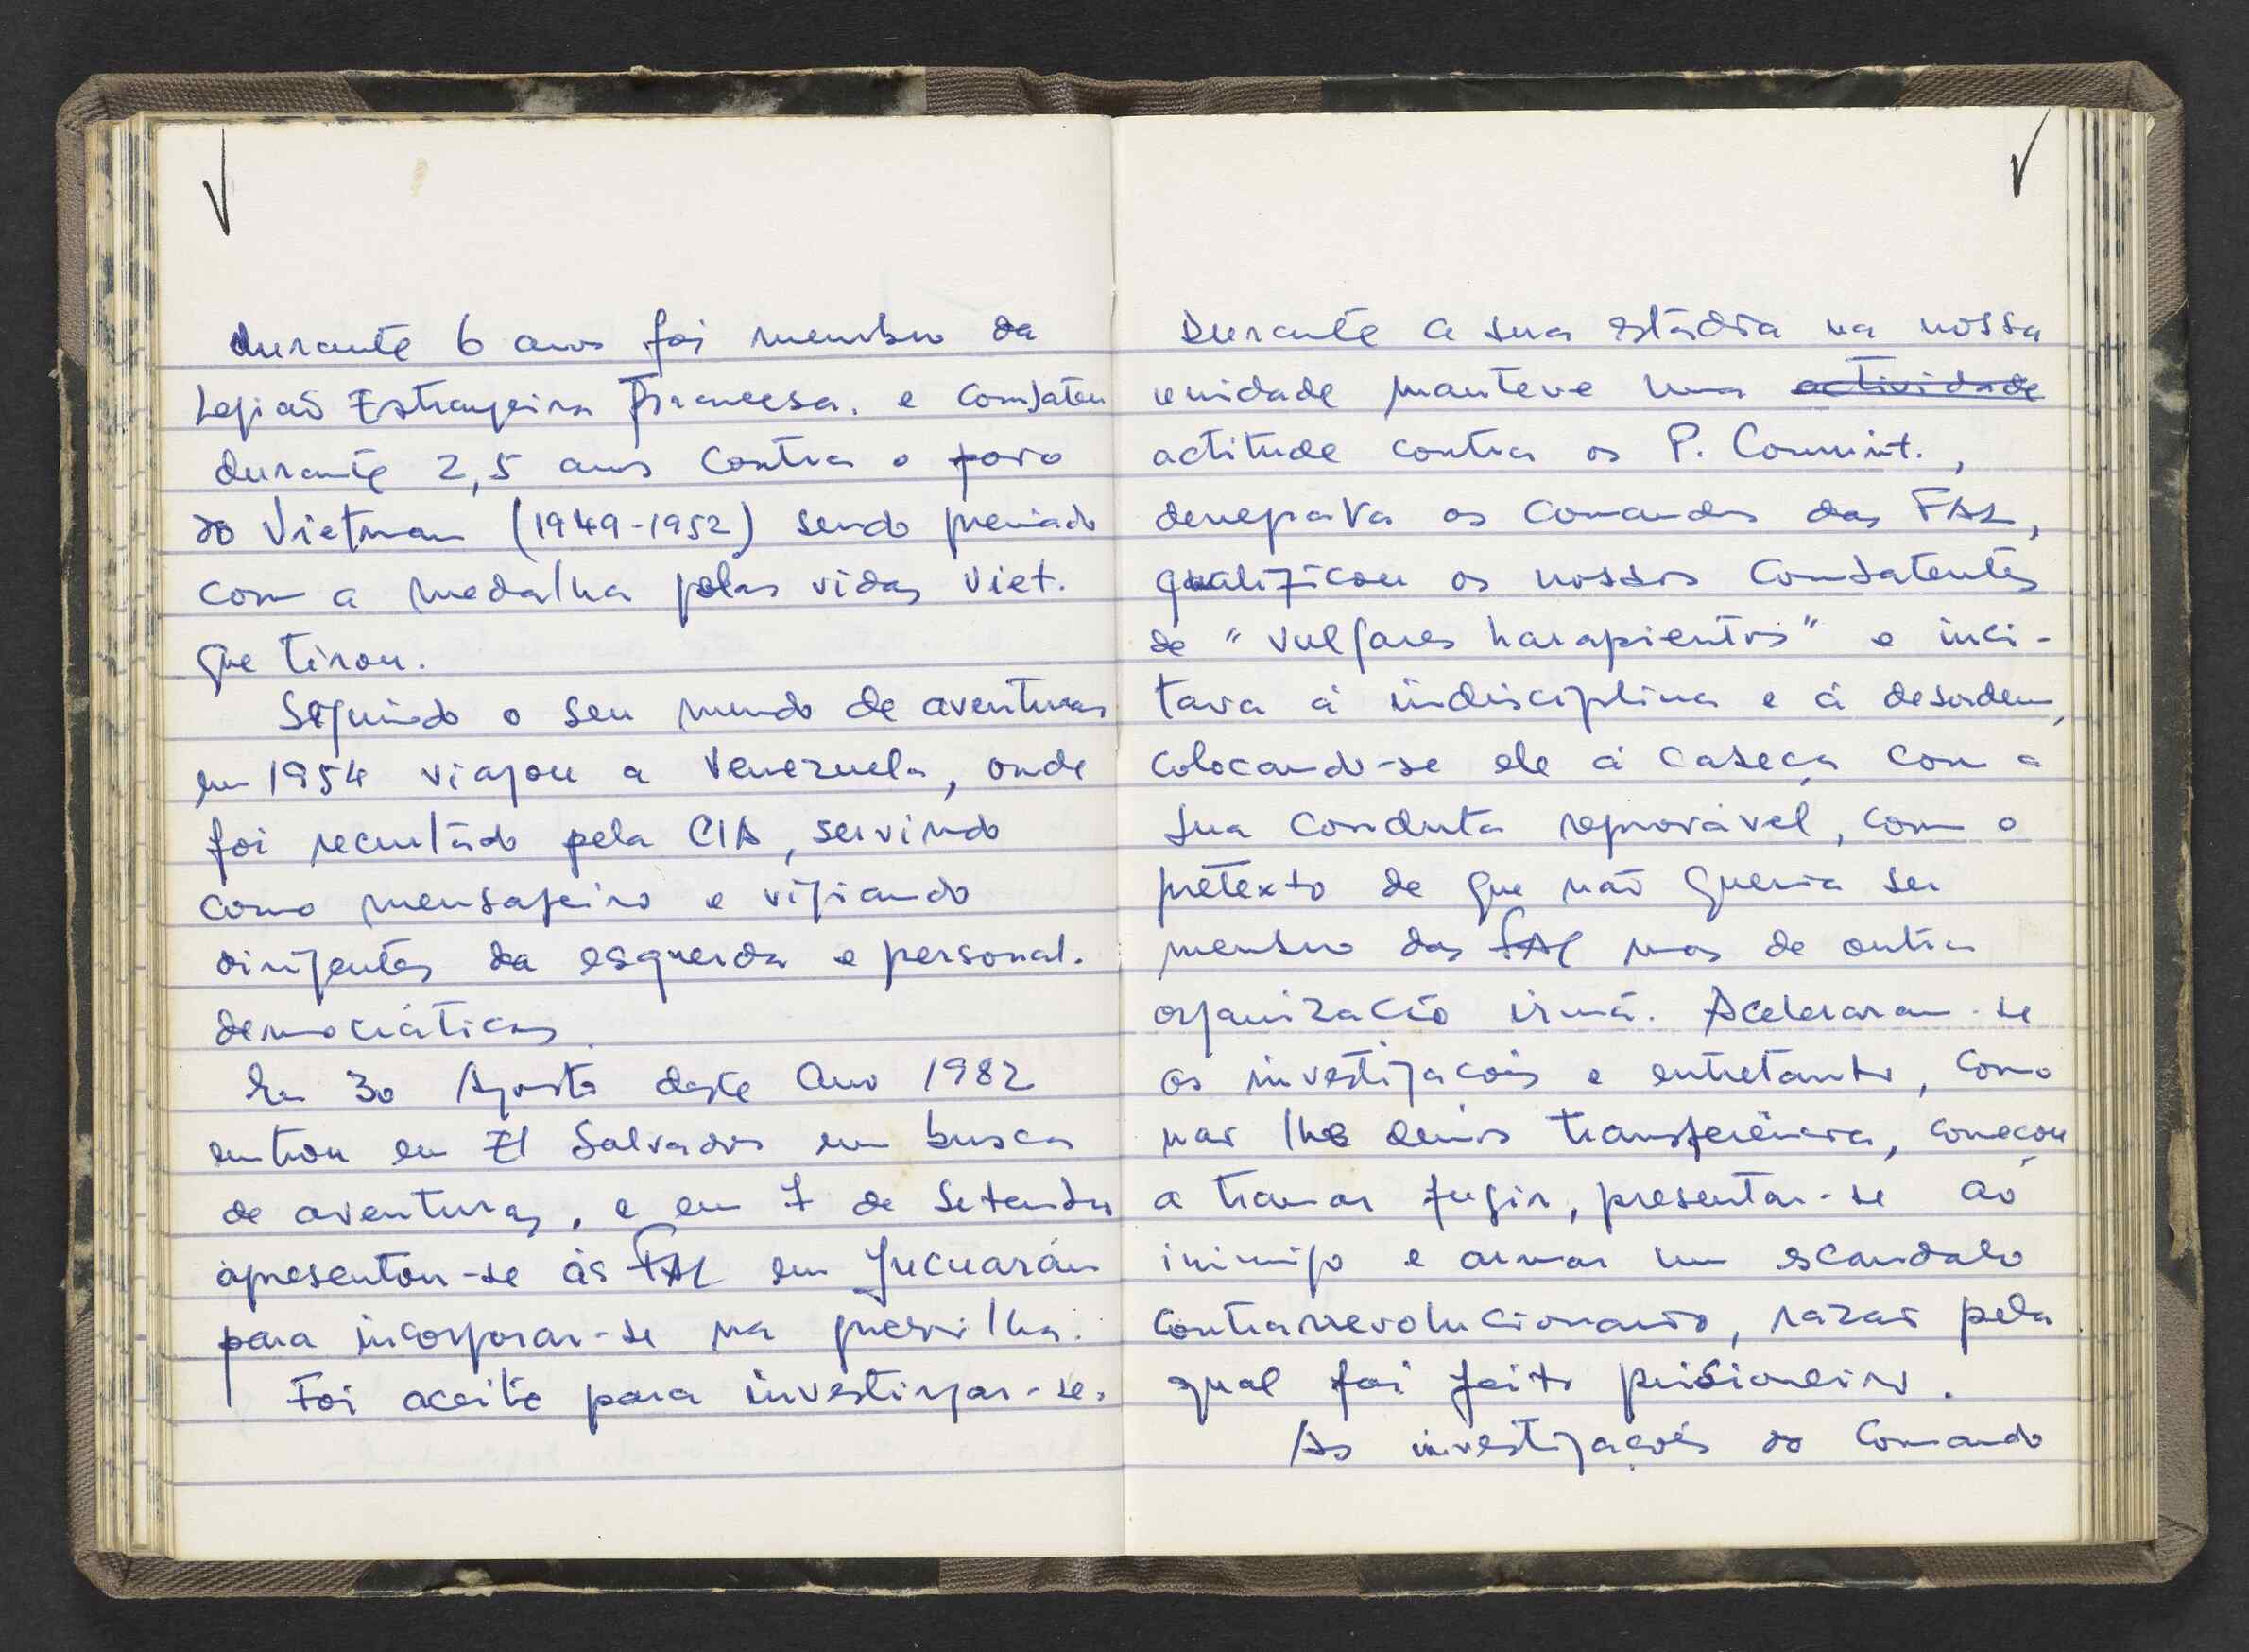 durante 6 anos foi membro da
Legião Estrangeira Francesa. e combateu
durante 2,5 anos contra o povo
do Vietnam (1949-1952) sendo premiado
com a medalha pelas vidas Viet.
que tirou.
Seguindo o seu mundo de aventuras
em 1954 viajou a Venezuela, onde
foi recrutado pela CIA, servindo
como mensageiro e vigiando
dirigentes da esquerda e personal.
democráticas.
Em 30 Agosto deste Ano 1982
entrou em El Salvador em busca
de aventuras, e em 7 de Setembro
apresentou-se às FAL em Jucuarán
para incorporar-se na guerrilha.
Foi aceite para investigar-se.
Durante a sua estadia na nossa
unidade manteve uma actividade
actitude contra os P. Comunist.,
denegava os Comandos das FAL,
qualificou os nossos Combatentes
de "vulgares harapientos" e inci-
tava à indisciplina e à desordem,
colocando-se ele à cabeça com a
sua conduta reprovável, com o
pretexto de que não queria ser
membro das FAL mas de outra
organização irmã. Aceleraram-se
as investigações e entretanto, como
não lhe demos transferência, começou
a tramar fugir, presentar-se ao
inimigo e armar um escandalo
contrarrevolucionario, razão pela
qual foi feito prisioneiro.
As investigações do Comando